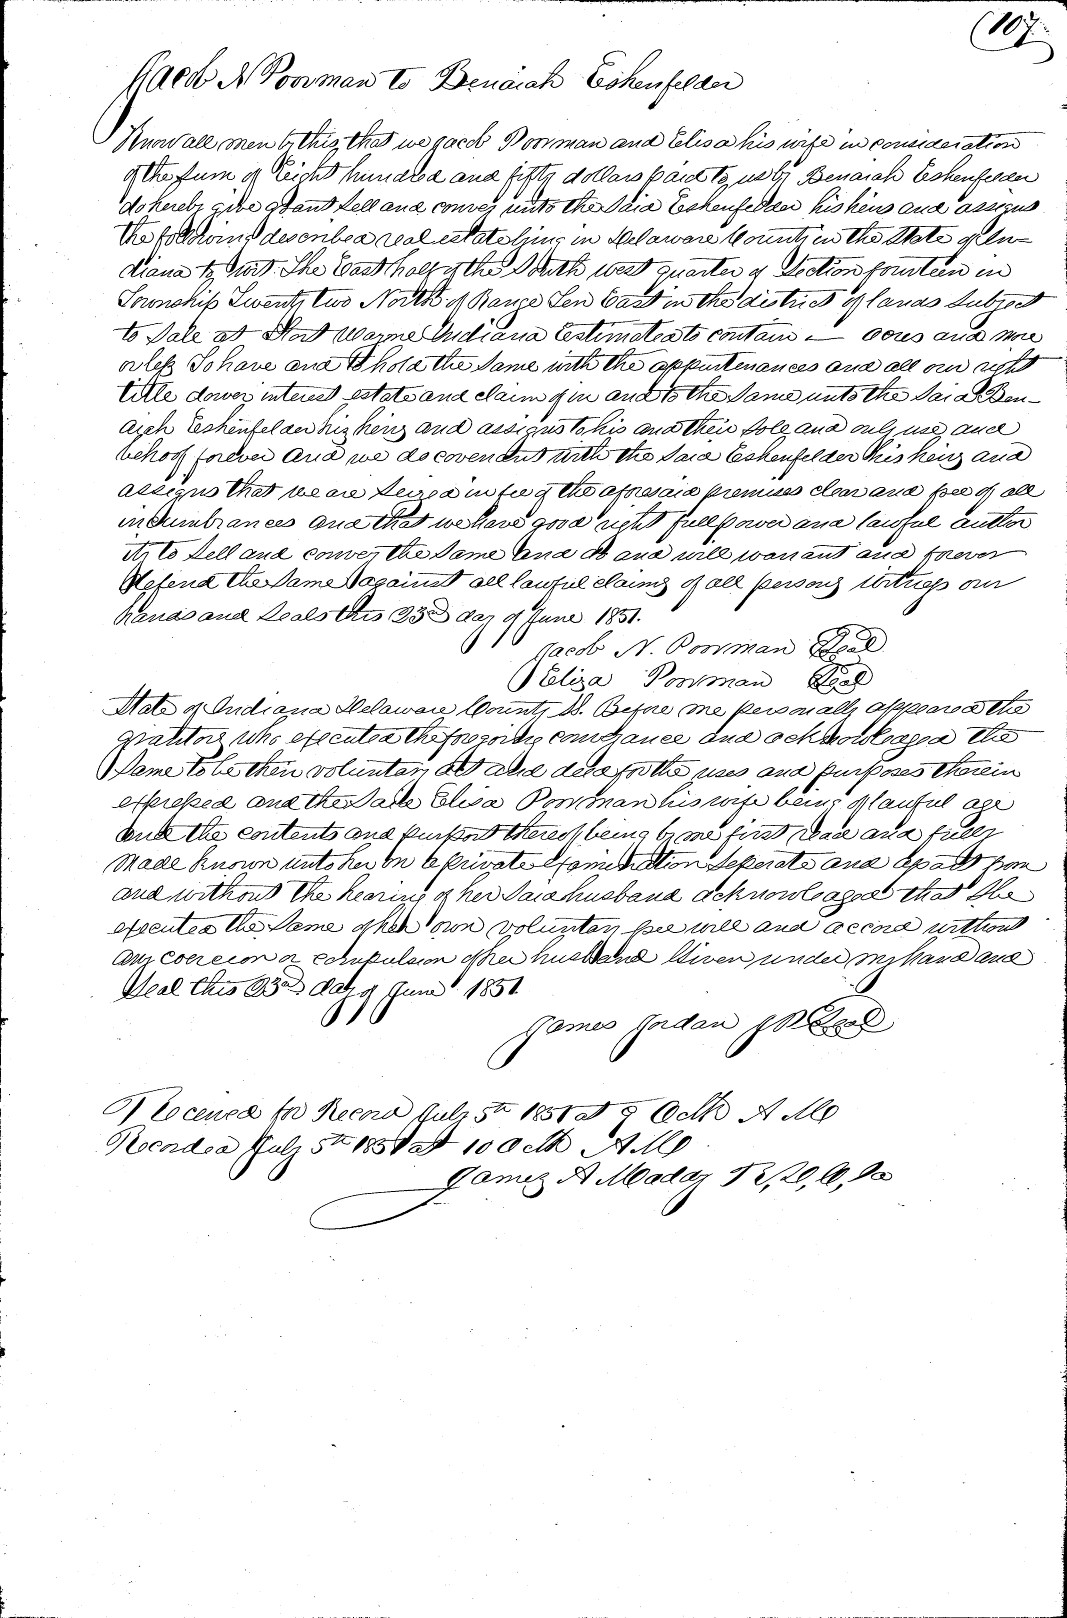 (107
Jacob N Poorman to Benaiah Eshenfelder
Know all men by this that we Jacob Poorman and Elisa his wife in consideration
of the sum of Eight hundred and fifty dollars paid to us by Benaiah Eshenfelder
do hereby give grant sell and convey unto the said Eshenfelder his heirs and assigns
the following described real estate lying in Delaware County in the State of In-
diana to wit: The East half of the South west quarter of Section fourteen in
Township Twenty two North of Range Ten East in the district of lands subject
to Sale at Fort Wayne Indiana Estimated to contain — acres and more
or less To have and to hold the same with the appurtenances and all our right
title dower interest estate and claim of in and to the same unto the said Ben-
aiah Eshenfelder his heirs and assigns to his and their sole and only use and
behoof forever And we do covenant with the said Eshenfelder his heirs and
assigns that we are seized in fee of the aforesaid premises clear and free of all
incumbrances and that we have good right full power and lawful author
ity to sell and convey the same and do and will warrant and forever
defend the same against all lawful claims of all persons witness our
hands and seals this 23rd day of June 1851.
Jacob N. Poorman Seal
Eliza Poorman Seal
State of Indiana Delaware County SS. Before me personally appeared the
grantors who executed the foregoing conveyance and acknowledged the
same to be their voluntary act and deed for the uses and purposes therein
expressed and the said Elisa Poorman his wife being of lawful age
and the contents and purport thereof being by me first read and fully
made known unto her on a private examination seperate and apart from
and without the hearing of her said husband acknowledged that she
executed the same of her own voluntary free will and accord without
any coercion or compulsion of her husband Given under my hand and
Seal this 23rd day of June 1851.
James Jordan JP Seal
Received for Record July 5th 1851 at 9 Oclk A M
Recorded July 5th 1851 at 10 Oclk A M
James A Maddy R, D, C, Ia